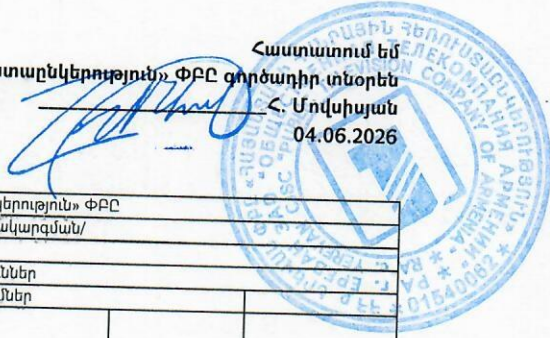 Հաստատում եմ
տաընկերություն» ՓԲԸ գործադիր տնօրեն
Հ. Մովսիսյան
04.06.2026
կերություն» ՓԲԸ
ակարգման/
ններ
մներ
TELEVISION COMPANY OF ARMENIA
ТЕЛЕКОМПАНИЯ АРМЕНИИ
01540082